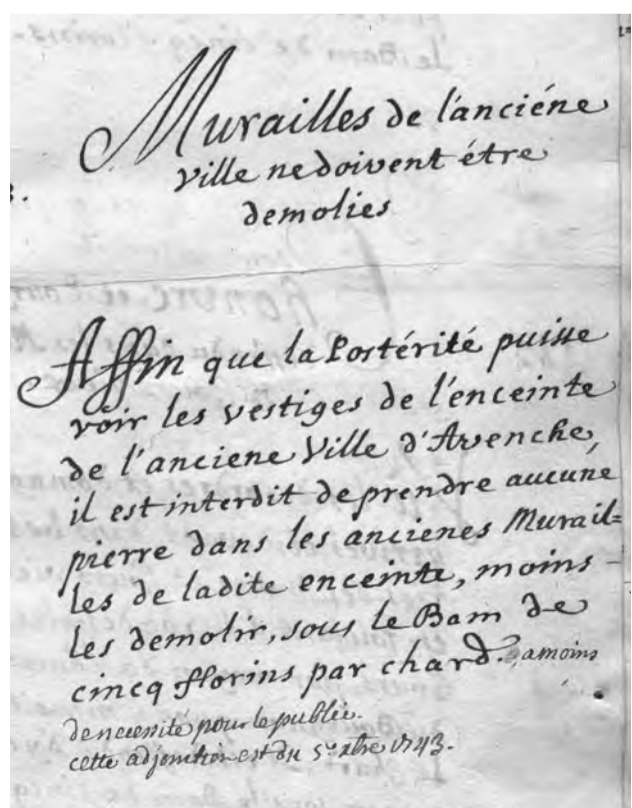 Murailles de l'anciéne
ville ne doivent étre
demolies
Affin que la Postérité puisse
voir les vestiges de l'enceinte
de l'anciene Ville d'Avenche,
il est interdit de prendre aucune
pierre dans les ancienes Murail=
les de ladite enceinte, moins
les demolir, sous le Bam de
cinq florins par chard. a moins
de necessité pour le public.
cette adjonction est du 5e xbre 1743.